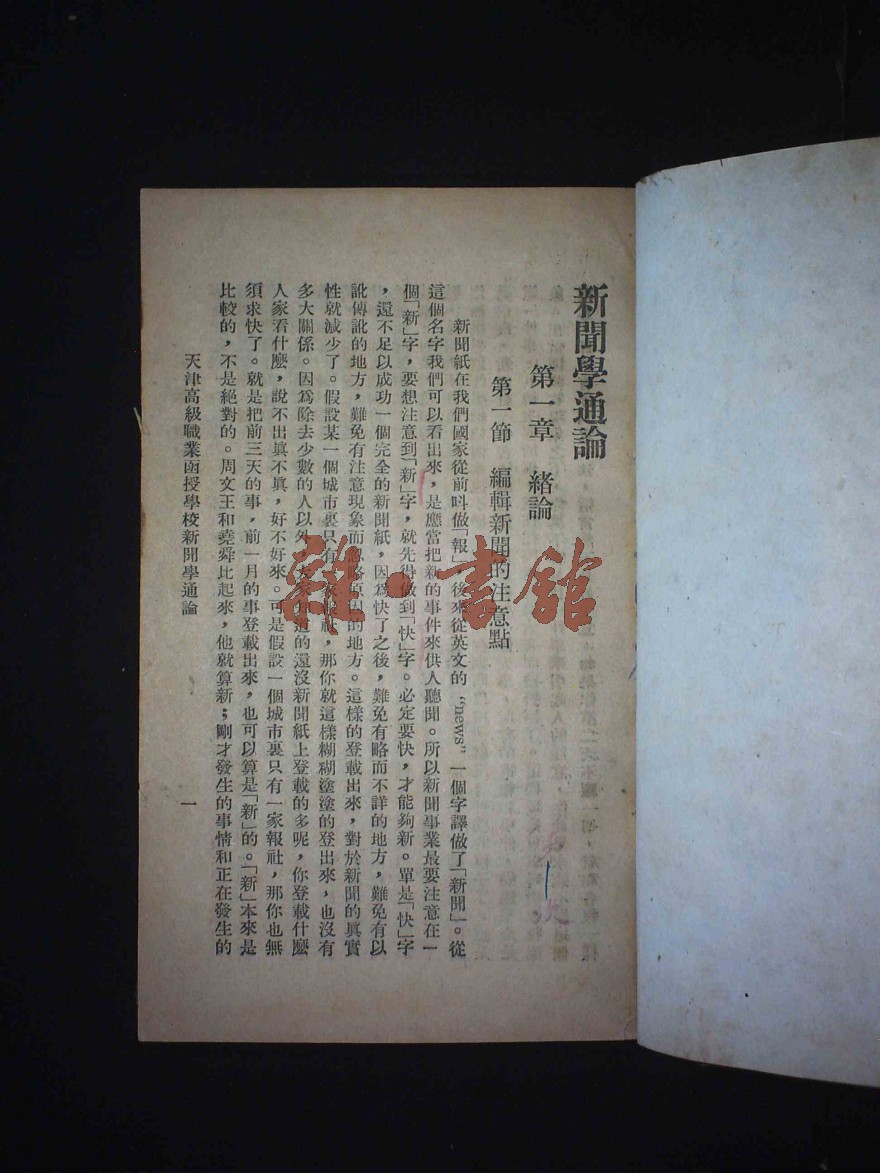 新聞學通論
第一章　緒論
第一節　編輯新聞的注意點
新聞紙在我們國家從前呌做「報」，後來從英文的 “news” 一個字譯做了「新聞」。從
這個名字我們可以看出來，是應當把新的事件來供人聽聞。所以新聞事業最要注意在一
個「新」字，要想注意到「新」字，就先得做到「快」字。必定要快，才能夠新。單是「快」字
，還不足以成功一個完全的新聞紙，因爲快了之後，難免有略而不詳的地方，難免有以
訛傳訛的地方，難免有注意現象而忽略原因的地方。這樣的登載出來，對於新聞的眞實
性就減少了。假設某一個城市裏只有一家報社，那你就這樣糊糊塗塗的登出來，也沒有
多大關係。因爲除去少數的人以外，大家知道的還沒新聞紙上登載的多呢，你登載什麼
人家看什麼，說不出眞不眞，好不好來。可是假設一個城市裏只有一家報社，那你也無
須求快了。就是把前三天的事，前一月的事登載出來，也可以算是「新」的。「新」本來是
比較的，不是絕對的。周文王和堯舜比起來，他就算新；剛才發生的事情和正在發生的
天津高級職業函授學校新聞學通論
一
雜·書館